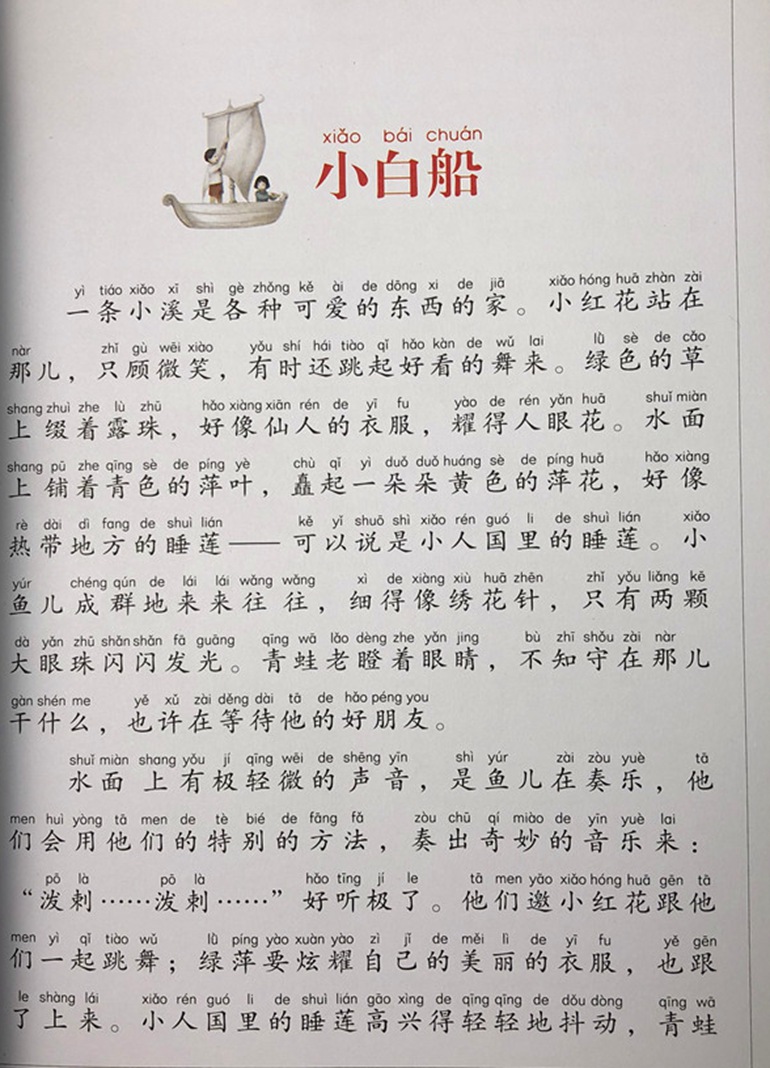 xiǎo bái chuán
小白船
yì tiáo xiǎo xī shì gè zhǒng kě ài de dōng xi de jiā xiǎo hóng huā zhàn zài
一条小溪是各种可爱的东西的家。小红花站在
nàr zhǐ gù wēi xiào yǒu shí hái tiào qǐ hǎo kàn de wǔ lai lǜ sè de cǎo
那儿，只顾微笑，有时还跳起好看的舞来。绿色的草
shang zhuì zhe lù zhū hǎo xiàng xiān rén de yī fu yào de rén yǎn huā shuǐ miàn
上缀着露珠，好像仙人的衣服，耀得人眼花。水面
shang pū zhe qīng sè de píng yè chù qǐ yì duǒ duǒ huáng sè de píng huā hǎo xiàng
上铺着青色的萍叶，矗起一朵朵黄色的萍花，好像
rè dài dì fang de shuì lián kě yǐ shuō shì xiǎo rén guó li de shuì lián xiǎo
热带地方的睡莲——可以说是小人国里的睡莲。小
yúr chéng qún de lái lái wǎng wǎng xì de xiàng xiù huā zhēn zhǐ yǒu liǎng kē
鱼儿成群地来来往往，细得像绣花针，只有两颗
dà yǎn zhū shǎn shǎn fā guāng qīng wā lǎo dèng zhe yǎn jing bù zhī shǒu zài nàr
大眼珠闪闪发光。青蛙老瞪着眼睛，不知守在那儿
gàn shén me yě xǔ zài děng dài tā de hǎo péng you
干什么，也许在等待他的好朋友。
shuǐ miàn shang yǒu jí qīng wēi de shēng yīn shì yúr zài zòu yuè tā
水面上有极轻微的声音，是鱼儿在奏乐，他
men huì yòng tā men de tè bié de fāng fǎ zòu chū qí miào de yīn yuè lai
们会用他们的特别的方法，奏出奇妙的音乐来：
pō là pō là hǎo tīng jí le tā men yāo xiǎo hóng huā gēn tā
“泼剌……泼剌……”好听极了。他们邀小红花跟他
men yì qǐ tiào wǔ lǜ píng yào xuàn yào zì jǐ de měi lì de yī fu yě gēn
们一起跳舞；绿萍要炫耀自己的美丽的衣服，也跟
le shàng lái xiǎo rén guó li de shuì lián gāo xìng de qīng qīng de dǒu dòng qīng wā
了上来。小人国里的睡莲高兴得轻轻地抖动，青蛙